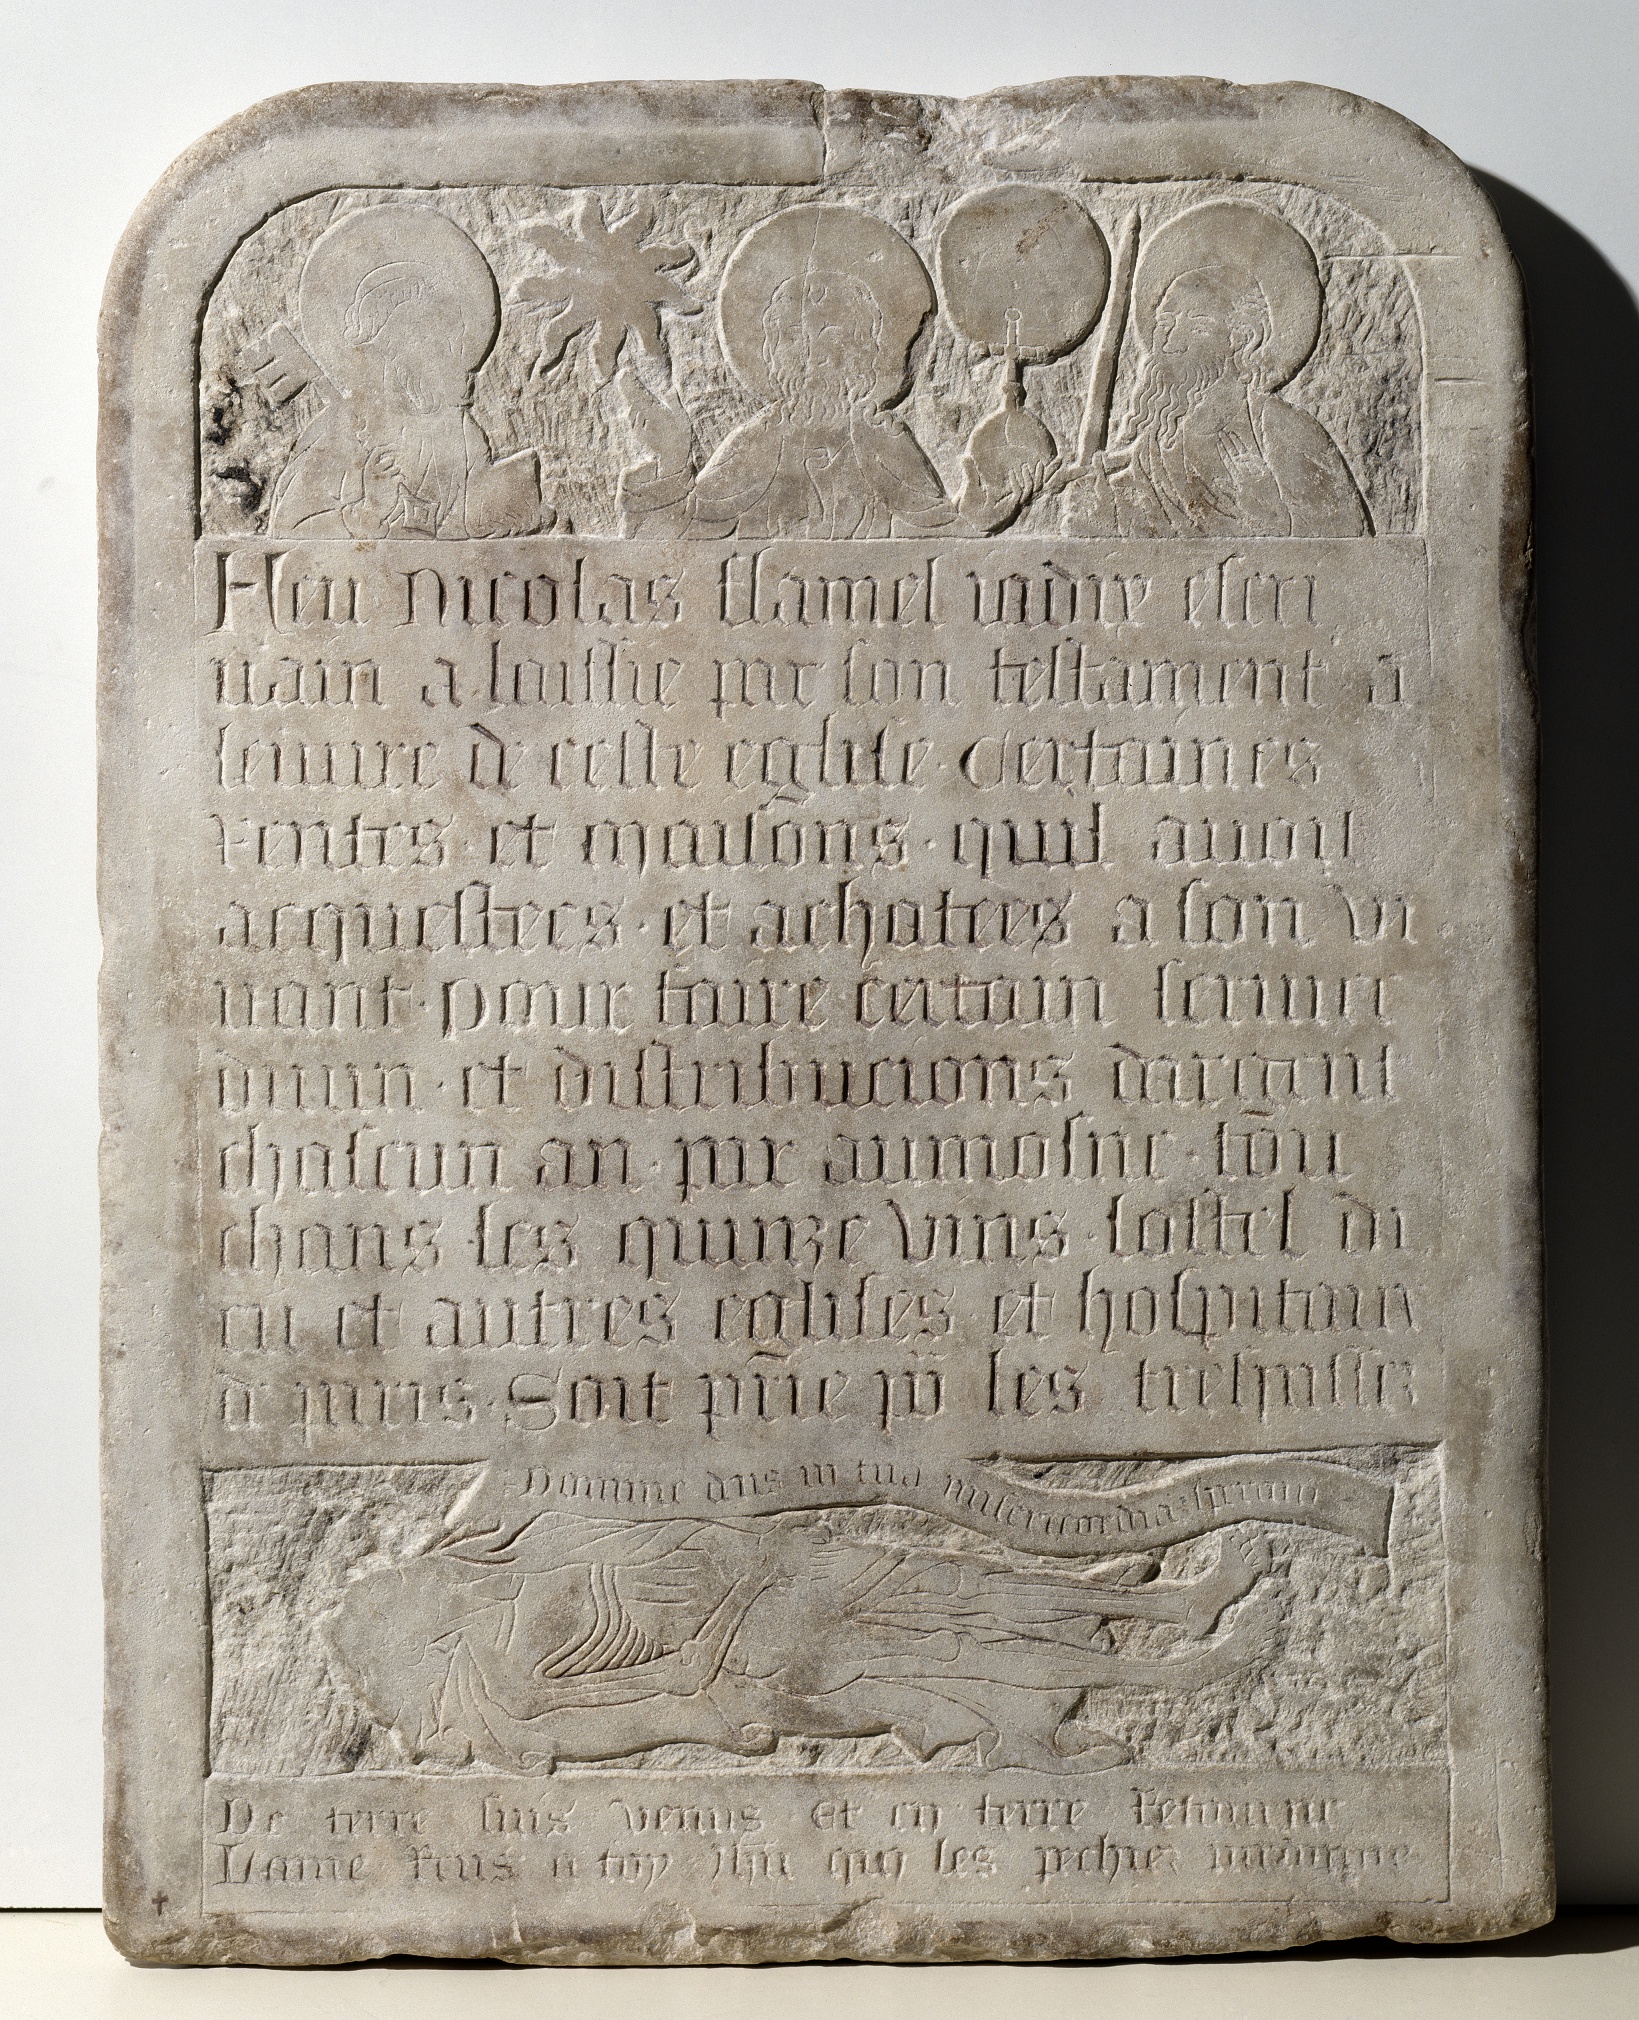 Feu Nicolas flamel iadix escri
uain a laissie par son testament a
leuure de ceste eglise · Certaines
rentes et maisons · quil auoit
acquestees · et achatees a son vi
uant · pour faire certain seruice
diuin · et distribucions dargent
chascun an · par aumosne · tou
chans les quinze vins · lostel di
eu et autres eglises et hospitaux
de paris · Soit prie pour les trespassez
Domine deus in tua misericordia speraui
De terre suis venus Et en terre Retourne
Lame Rens a toy Jhu qui les pechiez pardonne